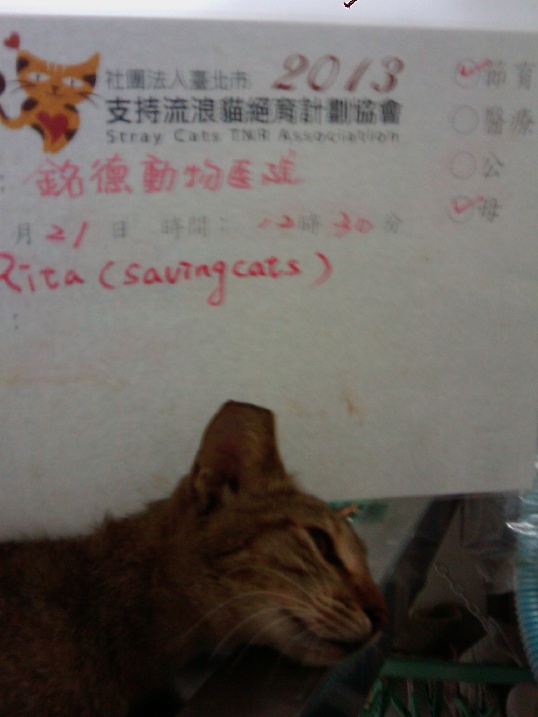 社團法人臺北市
2013
支持流浪貓絕育計劃協會
Stray Cats TNR Association
節育
醫療
公
母
: 銘德動物医院
月 21 日 時間: 12時30分
Rita (savingcats)
: